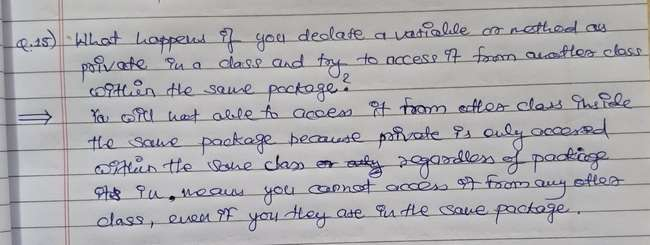 Q.15) What happens if you declare a variable or method as
private in a class and try to access it from another class
within the same package?
⇒ You will not able to access it from other class inside
the same package because private is only accessed
within the same class or only regardless of package
in, means you cannot access it from any other
class, even if you they are in the same package.